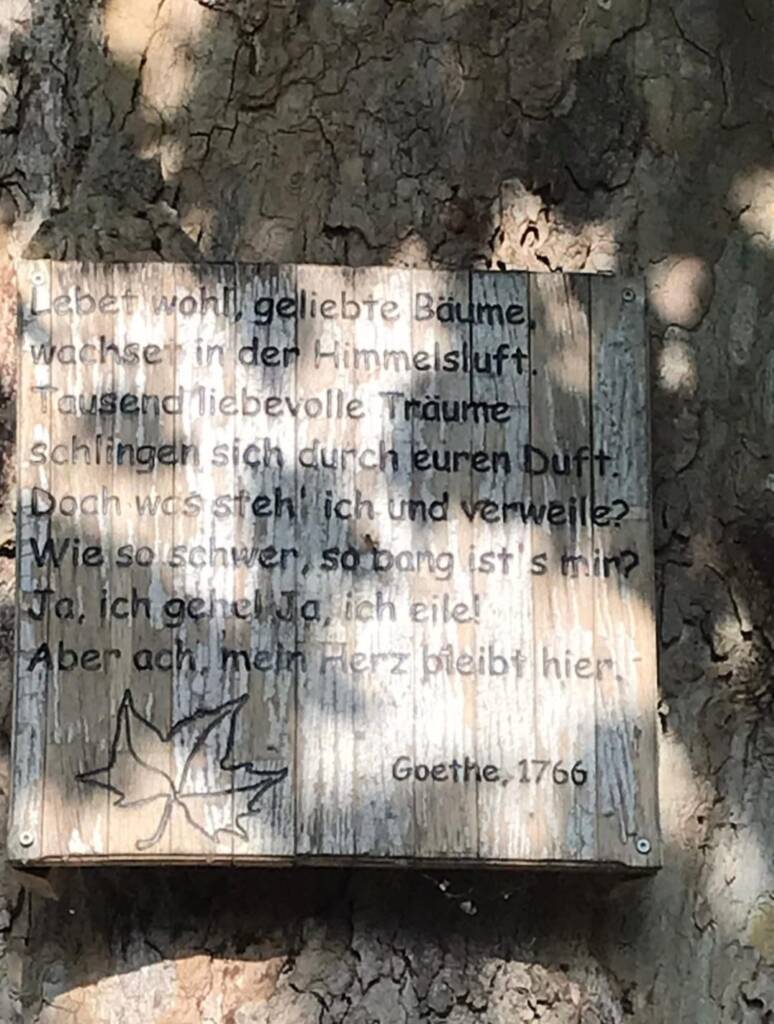 Lebet wohl, geliebte Bäume,
wachset in der Himmelsluft.
Tausend liebevolle Träume
schlingen sich durch euren Duft.
Doch was steh' ich und verweile?
Wie so schwer, so bang ist's mir?
Ja, ich gehe! Ja, ich eile!
Aber ach, mein Herz bleibt hier.
Goethe, 1766